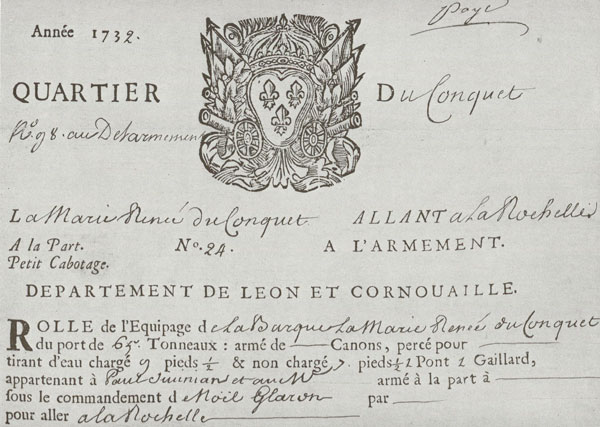 Année 1732. Paye
QUARTIER Du Conquet
No. 98. au Desarmement
La Marie Renée du Conquet ALLANT a La Rochelle
A la Part. No. 24. A L'ARMEMENT.
Petit Cabotage.
DEPARTEMENT DE LEON ET CORNOUAILLE.
ROLLE de l'Equipage de La Barque La Marie Renée du Conquet
du port de 65 Tonneaux : armé de Canons, percé pour
tirant d'eau chargé 9 pieds ½ & non chargé 7 pieds ½ 1 Pont 1 Gaillard,
appartenant à Paul et armé à la part à
sous le commandement de Noël Glaron par
pour aller a la Rochelle